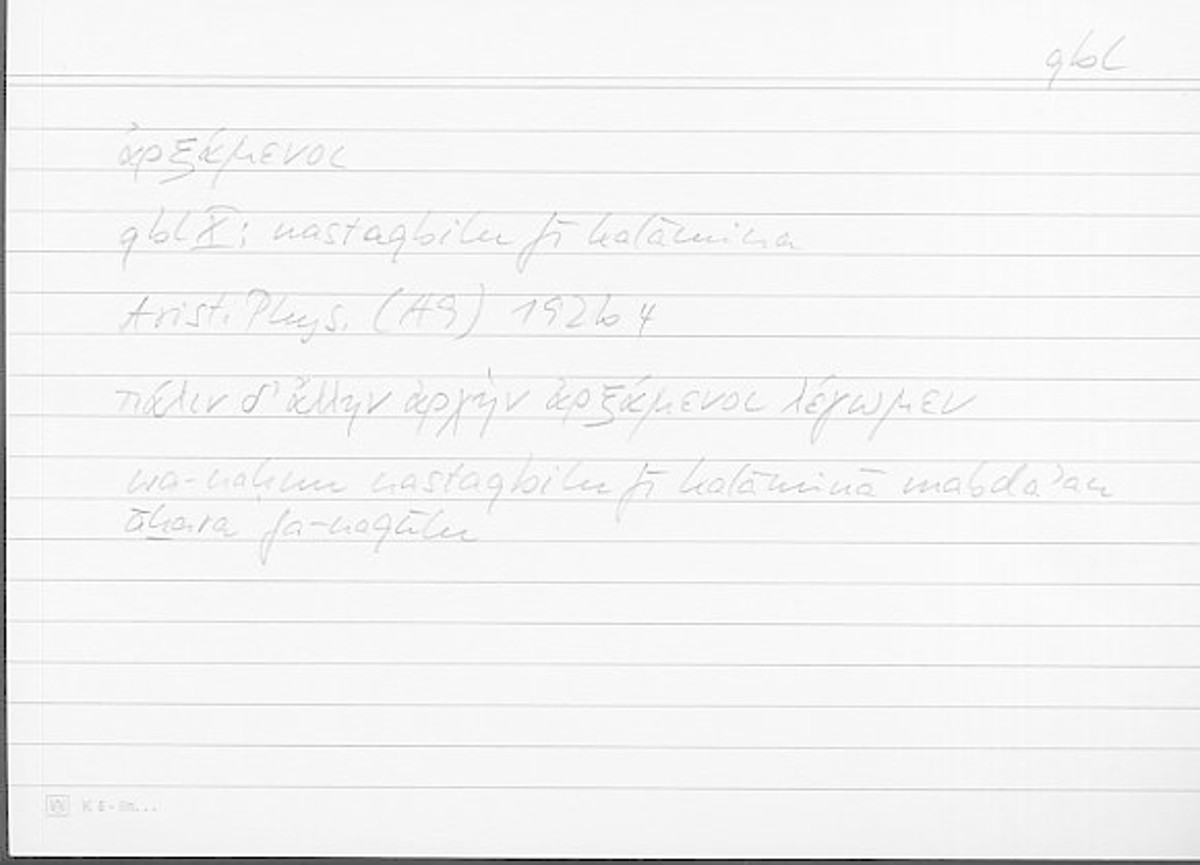 qbl
ἀρξάμενοι
qbl X: nastaqbilu fī kalāminā
Arist. Phys. (A9) 192b4
πάλιν δ' ἄλλην ἀρχὴν ἀρξάμενοι λέγωμεν
wa-naḥnu nastaqbilu fī kalāminā mabdaʾan
āḫara fa-naqūlu